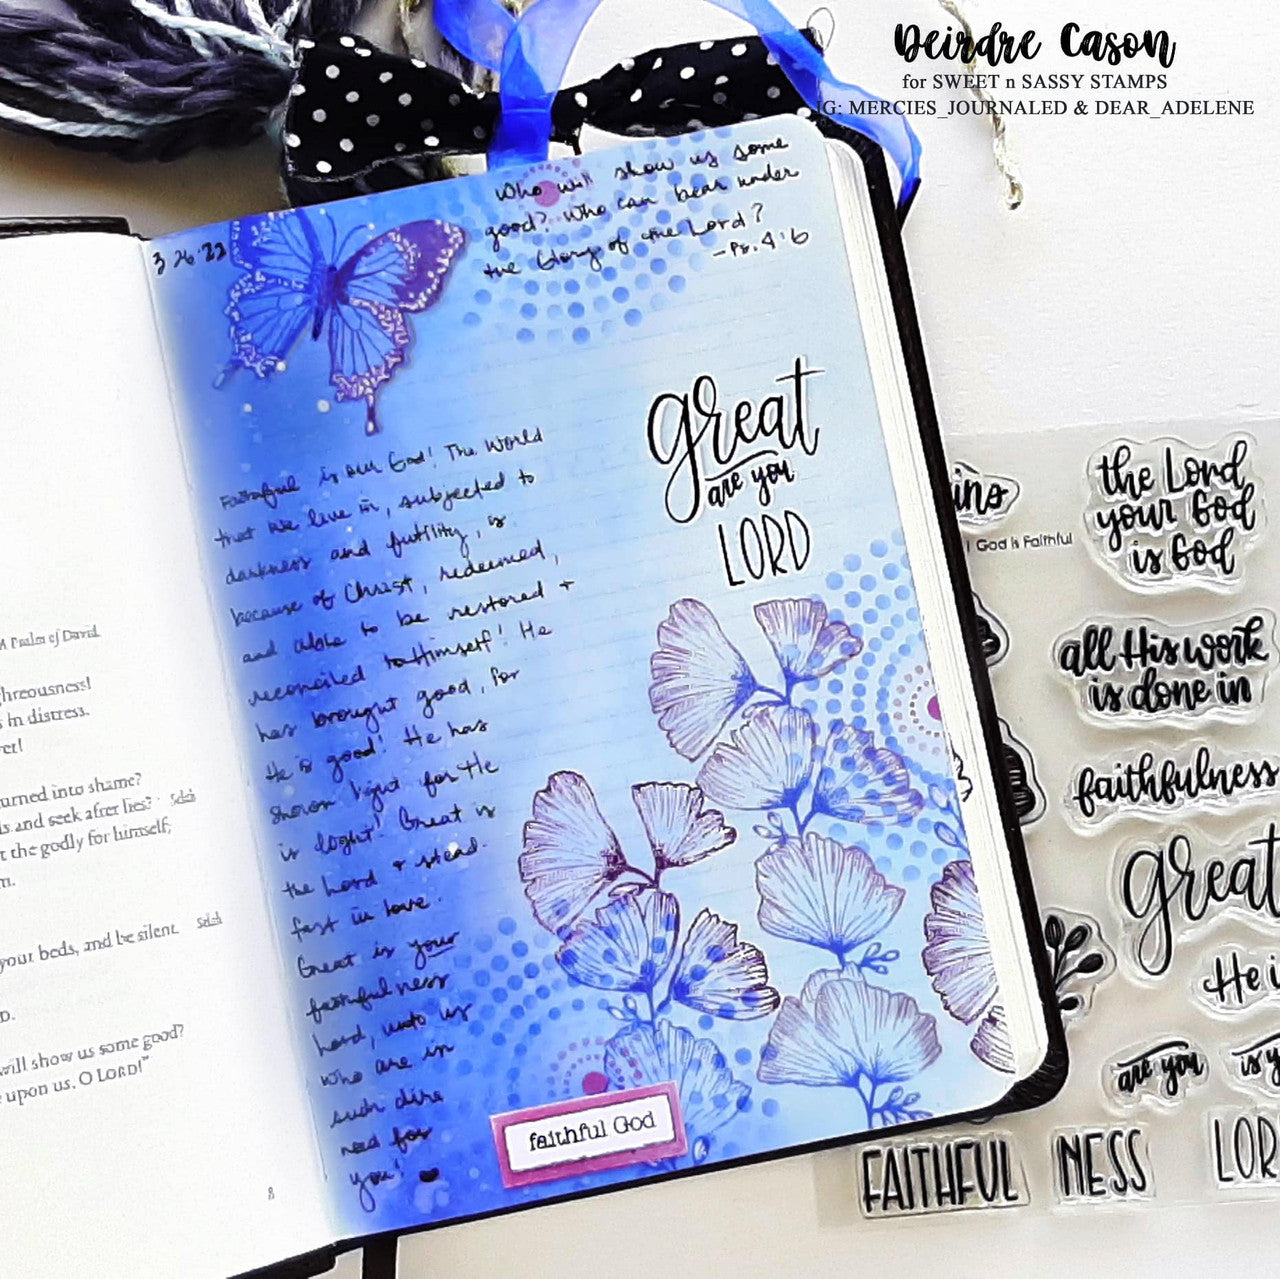 Deirdre Cason
for SWEET n SASSY STAMPS
IG: MERCIES_JOURNALED & DEAR_ADELENE
3 26 22
Who will show us some
good? Who can bear under
the Glory of the Lord?
-Ps. 4:6
great
are you
LORD
Faithful is our God! The World
that we live in, subjected to
darkness and futility, is
because of Christ, redeemed,
and able to be restored +
reconciled to Himself! He
has brought good, for
He is good! He has
shown light for He
is light! Great is
the Lord + stead
fast in love.
Great is your
faithfulness
Lord, unto us
who are in
such dire
need for
you!
faithful God
A Psalm of David.
ghteousness!
s in distress.
er!
urned into shame?
s and seek after lies? Selah
t the godly for himself;
m.
your beds, and be silent. Selah
D.
will show us some good?
upon us, O LORD!"
8
ins
God is Faithful
the Lord
your God
is God
all His work
is done in
faithfulness
great
He i
are you
is y
FAITHFUL NESS LOR